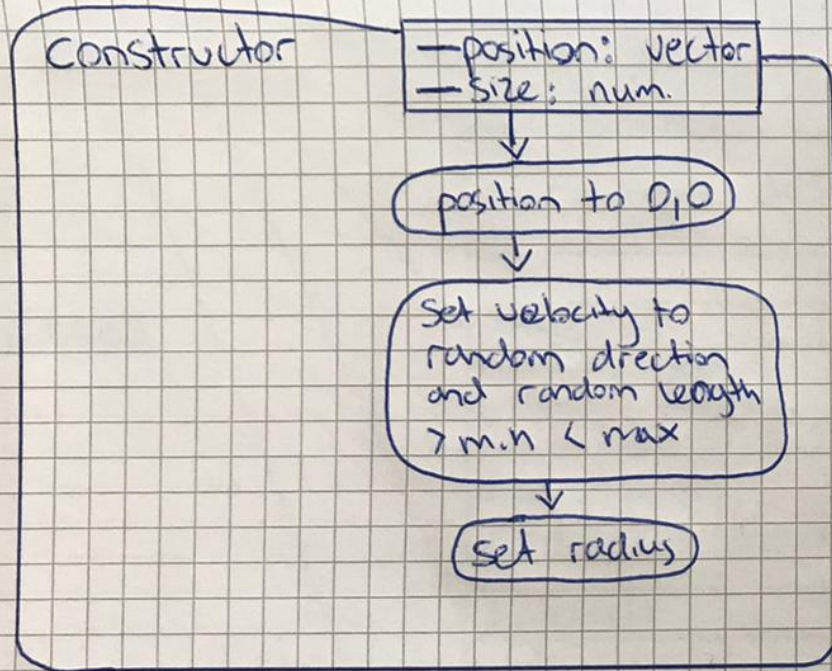 constructor
—position: vector
—size: num.
position to 0,0
set velocity to
random direction
and random length
>min < max
set radius